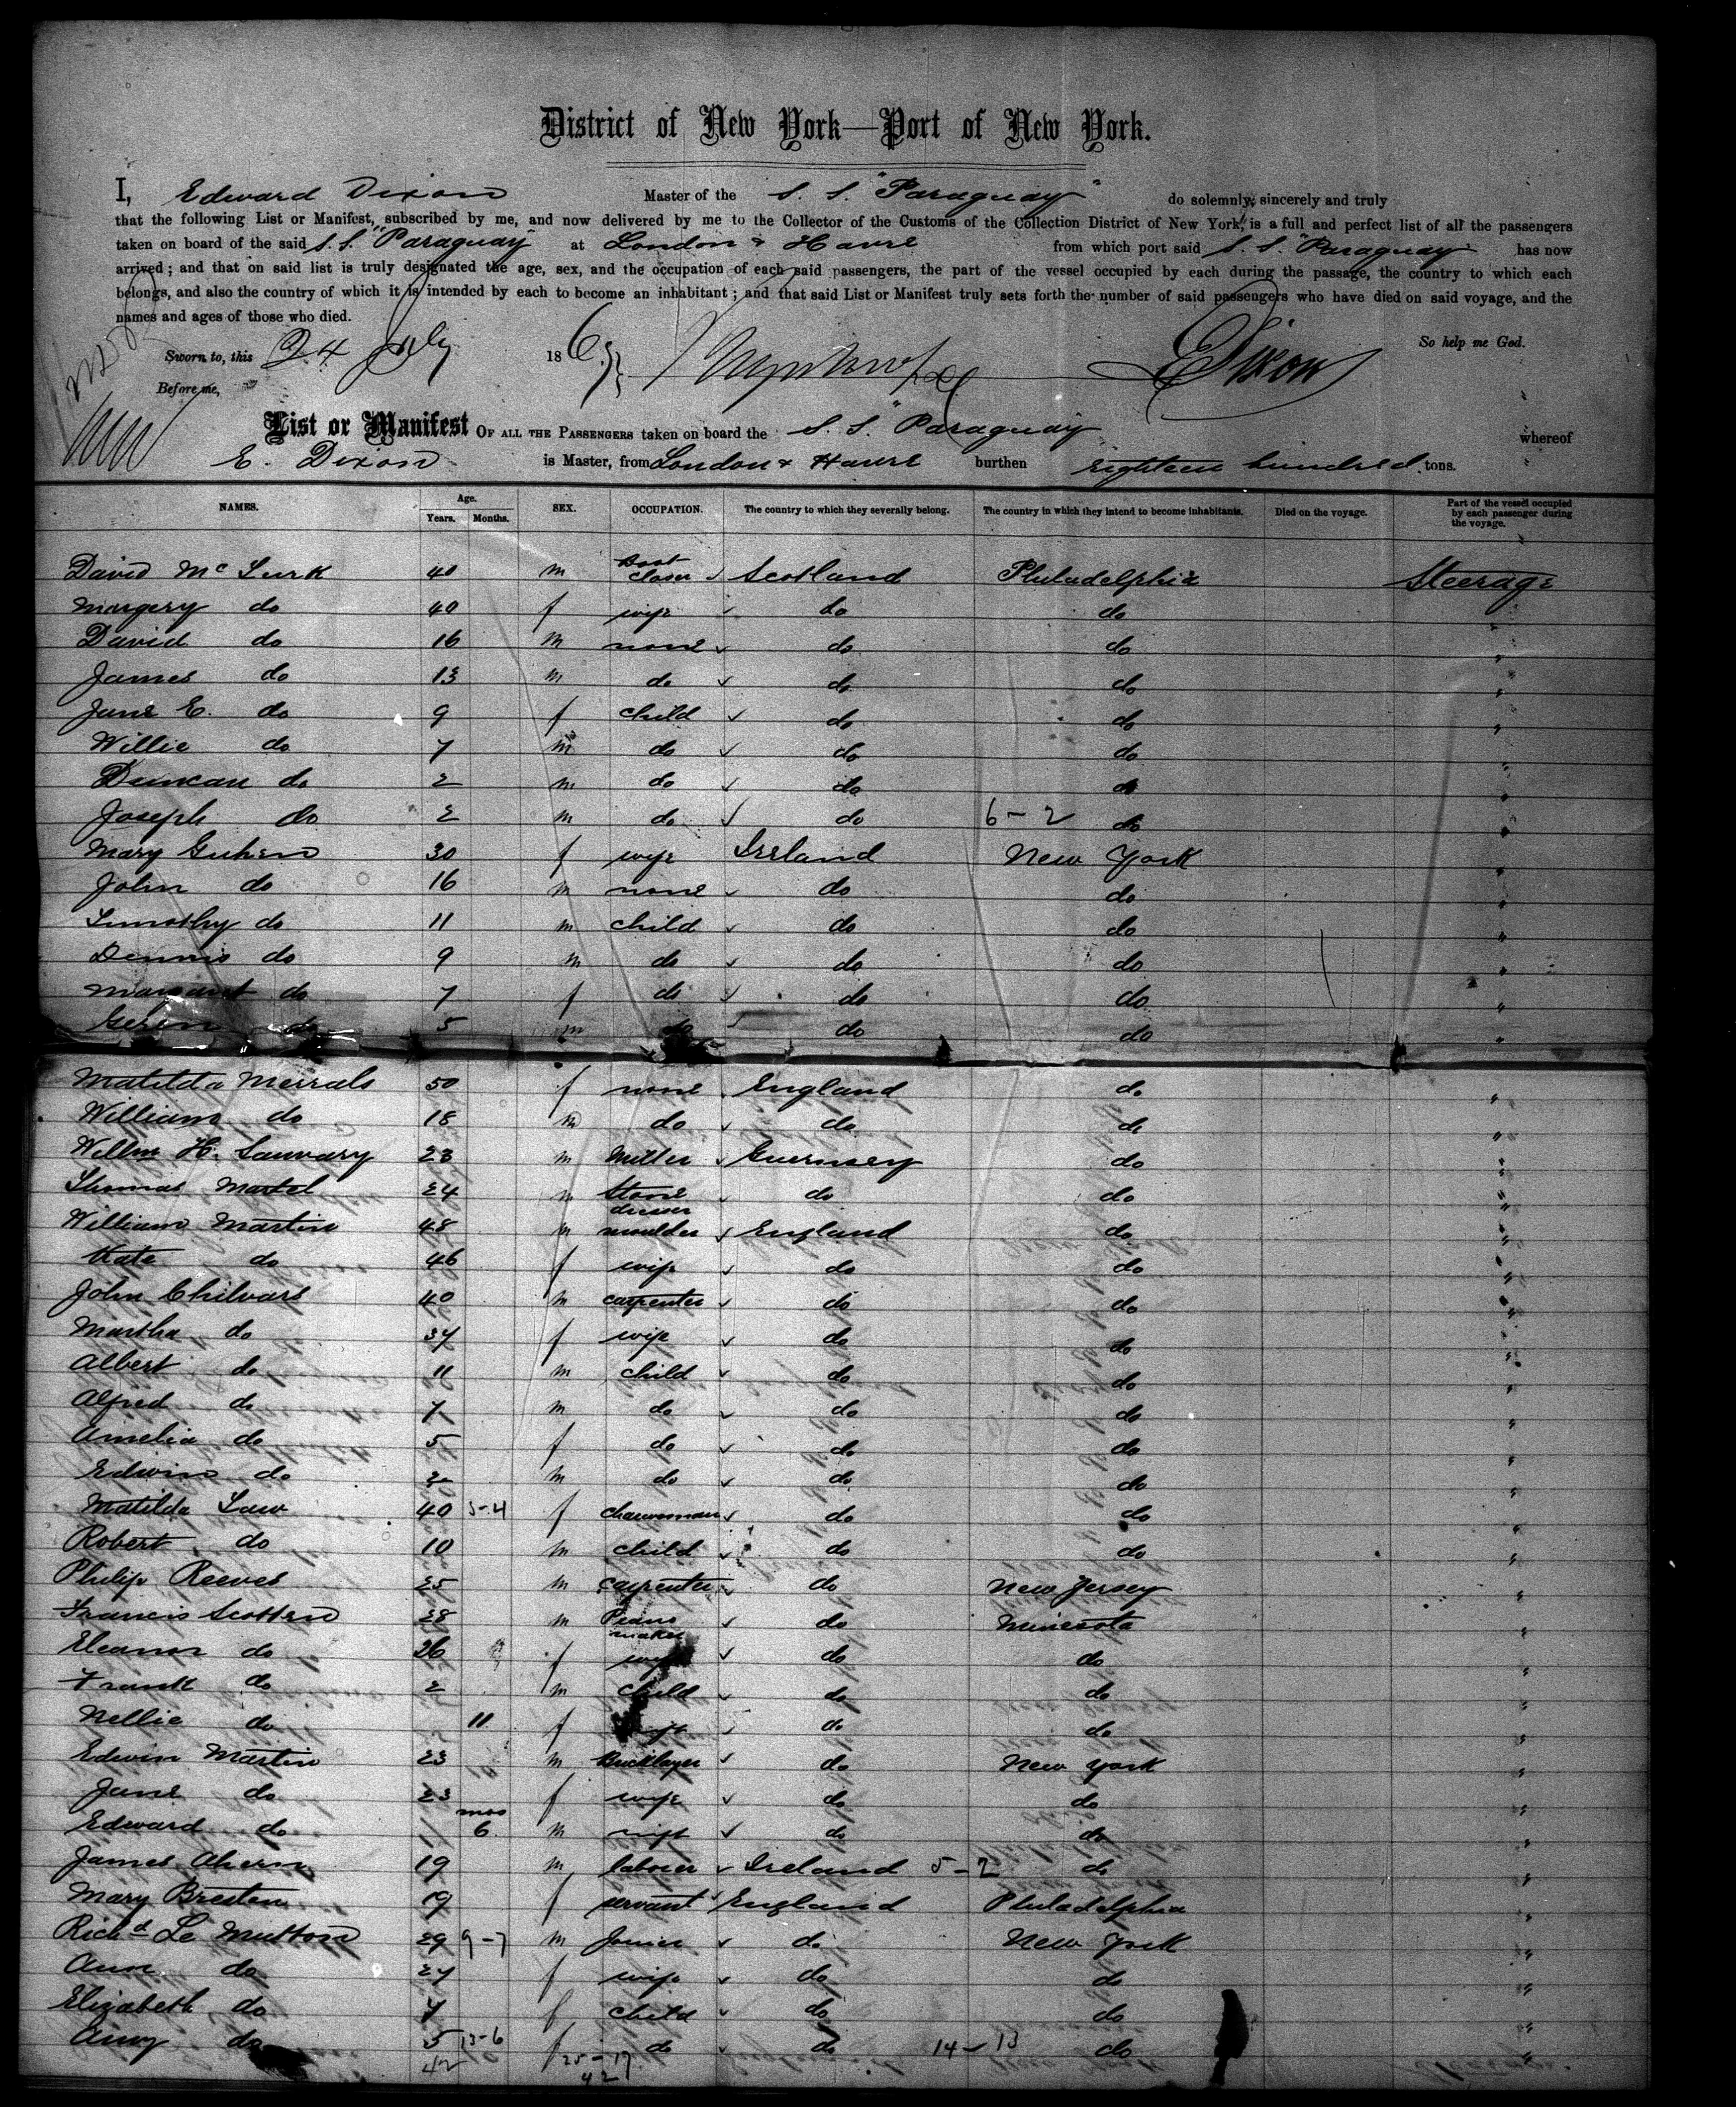 District of New York—Port of New York.
I, Edward Dixon Master of the S. S. "Paraguay" do solemnly, sincerely and truly
that the following List or Manifest, subscribed by me, and now delivered by me to the Collector of the Customs of the Collection District of New York, is a full and perfect list of all the passengers
taken on board of the said S. S. "Paraguay" at London & Havre from which port said S. S. "Paraguay" has now
arrived; and that on said list is truly designated the age, sex, and the occupation of each said passengers, the part of the vessel occupied by each during the passage, the country to which each
belongs, and also the country of which it is intended by each to become an inhabitant; and that said List or Manifest truly sets forth the number of said passengers who have died on said voyage, and the
names and ages of those who died.
So help me God.
Sworn to, this 24 July 1869 EDixon
Before me,
List or Manifest OF ALL THE PASSENGERS taken on board the S. S. "Paraguay" whereof
E. Dixon is Master, from London & Havre burthen eighteen hundred tons.
NAMES. Age. Years. Months. SEX. OCCUPATION. The country to which they severally belong. The country in which they intend to become inhabitants. Died on the voyage. Part of the vessel occupied by each passenger during the voyage.
David Mc Lurk 40 m Boot closer Scotland Philadelphia Steerage
Margery do 40 f wife do do "
David do 16 m none do do "
James do 13 m do do do "
Jane E. do 9 f child do do "
Willie do 7 m do do do "
Duncan do 2 m do do do "
Joseph do 2 m do do 6-2 do "
Mary Guhen 30 f wife Ireland New York "
John do 16 m none do do "
Timothy do 11 m child do do "
Dennis do 9 m do do do "
Margaret do 7 f do do do "
do 5 m do do do "
Matilda Merrals 50 f none England do "
William do 18 m do do do "
Willm H. Sauvary 23 m Miller Guernsey do "
Thomas Martel 24 m Stone dresser do do "
William Martin 48 m moulder England do "
Kate do 46 f wife do do "
John Chilvars 40 m carpenter do do "
Martha do 37 f wife do do "
Albert do 11 m child do do "
Alfred do 7 m do do do "
Amelia do 5 f do do do "
Edwin do 2 m do do do "
Matilda Law 40 5-4 f charwoman do do "
Robert do 10 m child do do "
Philip Reeves 25 m carpenter do New Jersey "
Francis Scotten 28 m Piano maker do Minesota "
Eleanor do 26 f wife do do "
Frank do 2 m child do do "
Nellie do 11 f do do "
Edwin Martin 23 m Bricklayer do New York "
Jane do 23 f wife do do "
Edward do mos 6 m inft do do "
James Ahern 19 m laborer Ireland 5-2 do "
Mary Bresten 19 f servant England Philadelphia "
Richd Le Mutton 29 9-7 m Joiner do New York "
Ann do 27 f wife do do "
Elizabeth do 7 f child do do "
Amy do 5 13-6 f do do 14-13 do "
42 25-17
42